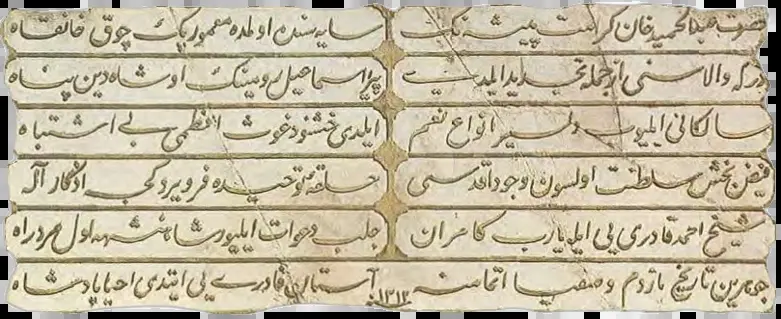 حضرت عبدالحمید خان کرامت پیشه نک سایه سنده اولمده معمور پک چوق خانقاه
درکه والاسنی ازجمله تجدید ایلدی پیر اسماعیل رومینک او شاه دین پناه
سالکانی ایلیوب دلسیر انواع نعم ایلدی خشنود غوث اعظمی بی اشتباه
فیض بخش سلطنت اولسون وجود اقدسی حلقهٔ توحیده فر ویردکجه اذکار اله
شیخ احمد قادری یی ایله یارب کامران جلب دعوات ایلیور شاهنشهه اول مرد راه
جوهرین تاریخ یازدم وصفیا اتمامنه آستان قادری یی ایتدی احیا پادشاه
١٣١٢